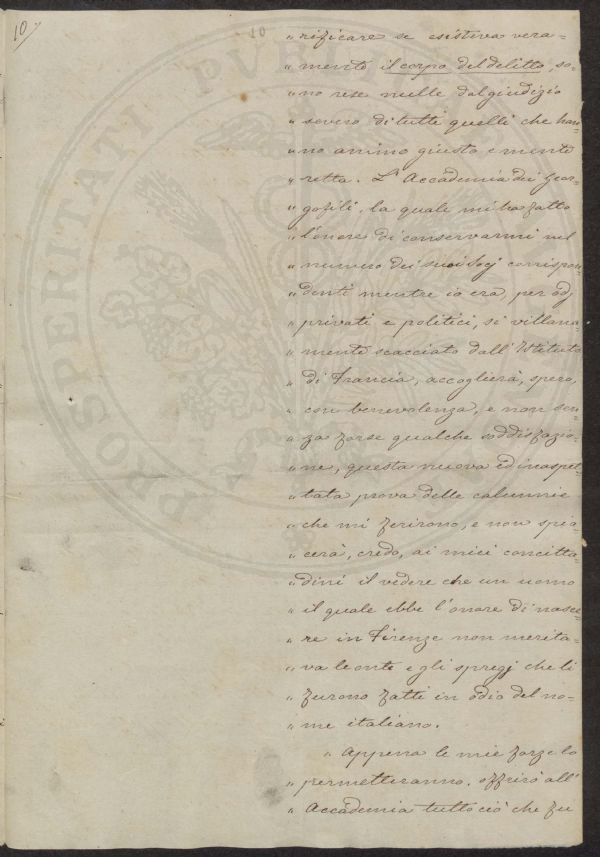 10.
10
" rificare se esisteva vera=
" mente il corpo del delitto, so=
" no rese nulle dal giudizio
" severo di tutti quelli che han=
" no animo giusto e mente
" retta. L'Accademia dei Geor=
" gofili, la quale mi ha fatto
" l'onore di conservarmi nel
" numero dei suoi Socj corrispon=
" denti mentre io era per odj
" privati e politici, sì villana=
" mente scacciato dall'Istituto
" di Francia, accoglierà, spero,
" con benevolenza, e non sen=
" za forse qualche soddisfazio=
" ne, questa nuova ed inaspet=
" tata prova delle calunnie
" che mi ferirono, e non spia=
" cerà, credo, ai miei concitta=
" dini il vedere che un uomo
" il quale ebbe l'onore di nasce=
" re in Firenze non merita=
" va le onte e gli spregj che li
" furono fatti in odio del no=
" me italiano.
" Appena le mie forze lo
" permetteranno, offrirò all'
" Accademia tutto ciò che fu
PROSPERITATI PUBLICAE